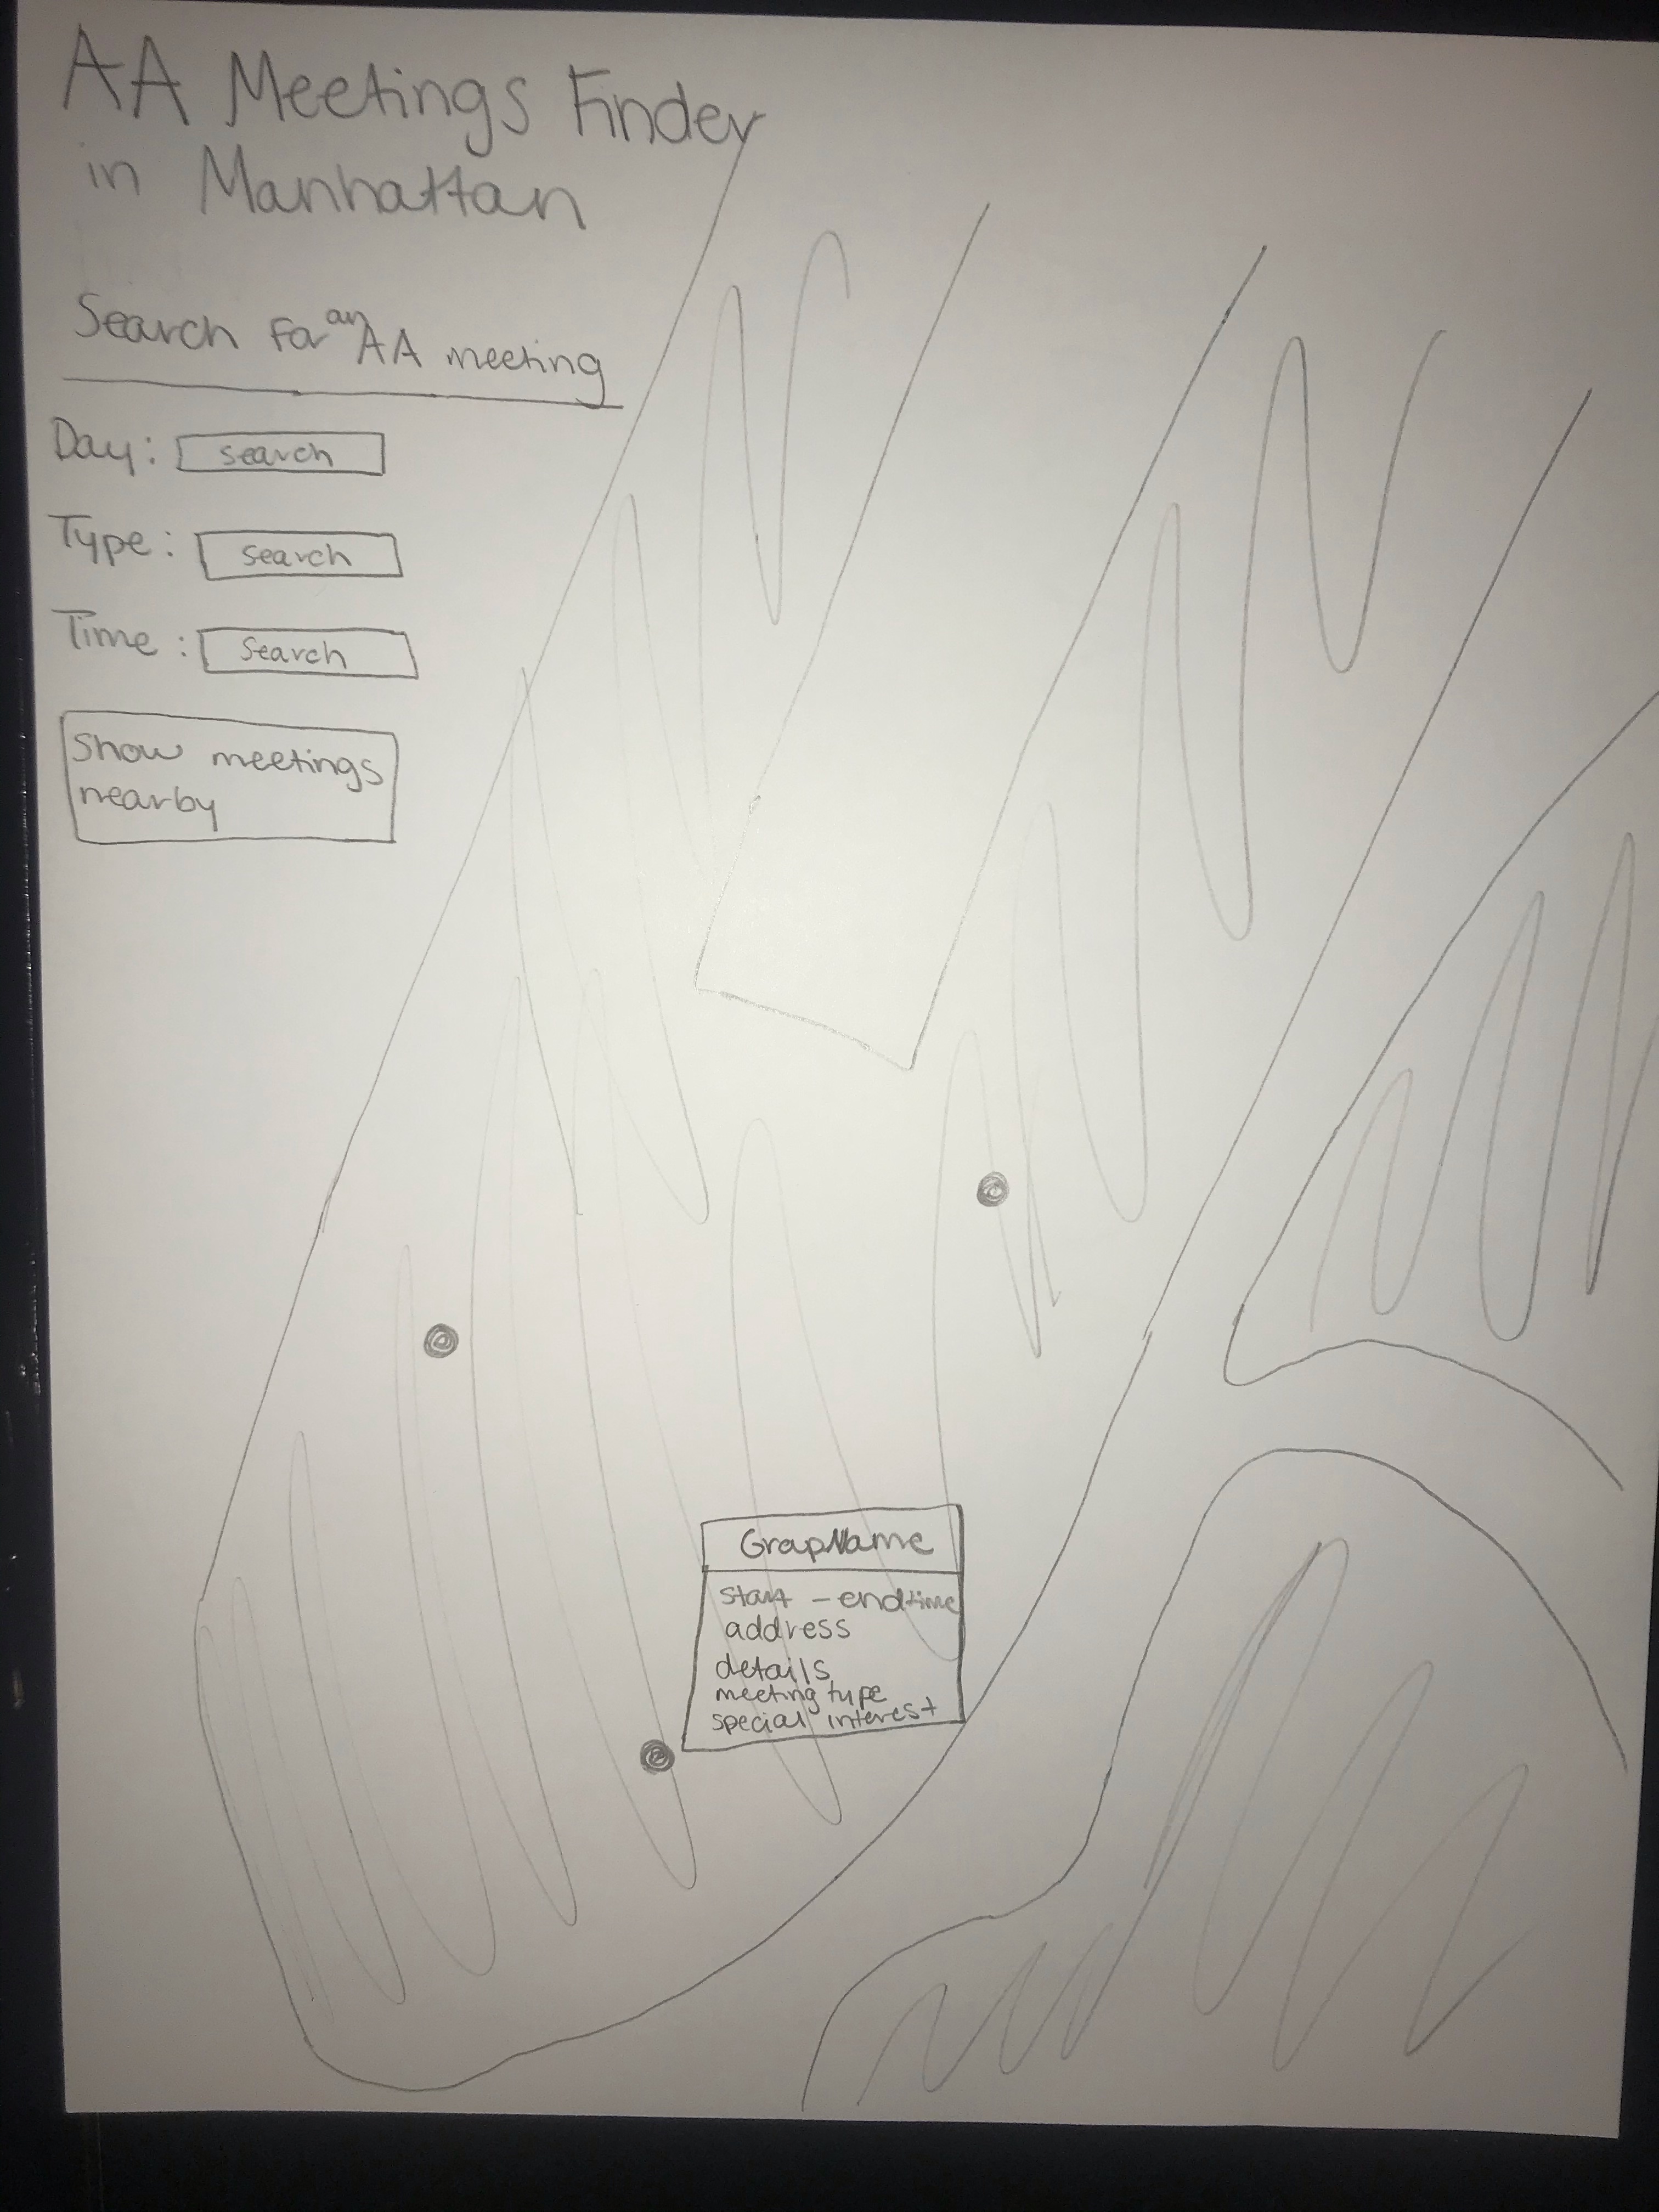 AA Meetings Finder
in Manhattan
Search for an AA meeting
Day: search
Type: search
Time: Search
Show meetings
nearby
GroupName
start - endtime
address
details
meeting type
special interest